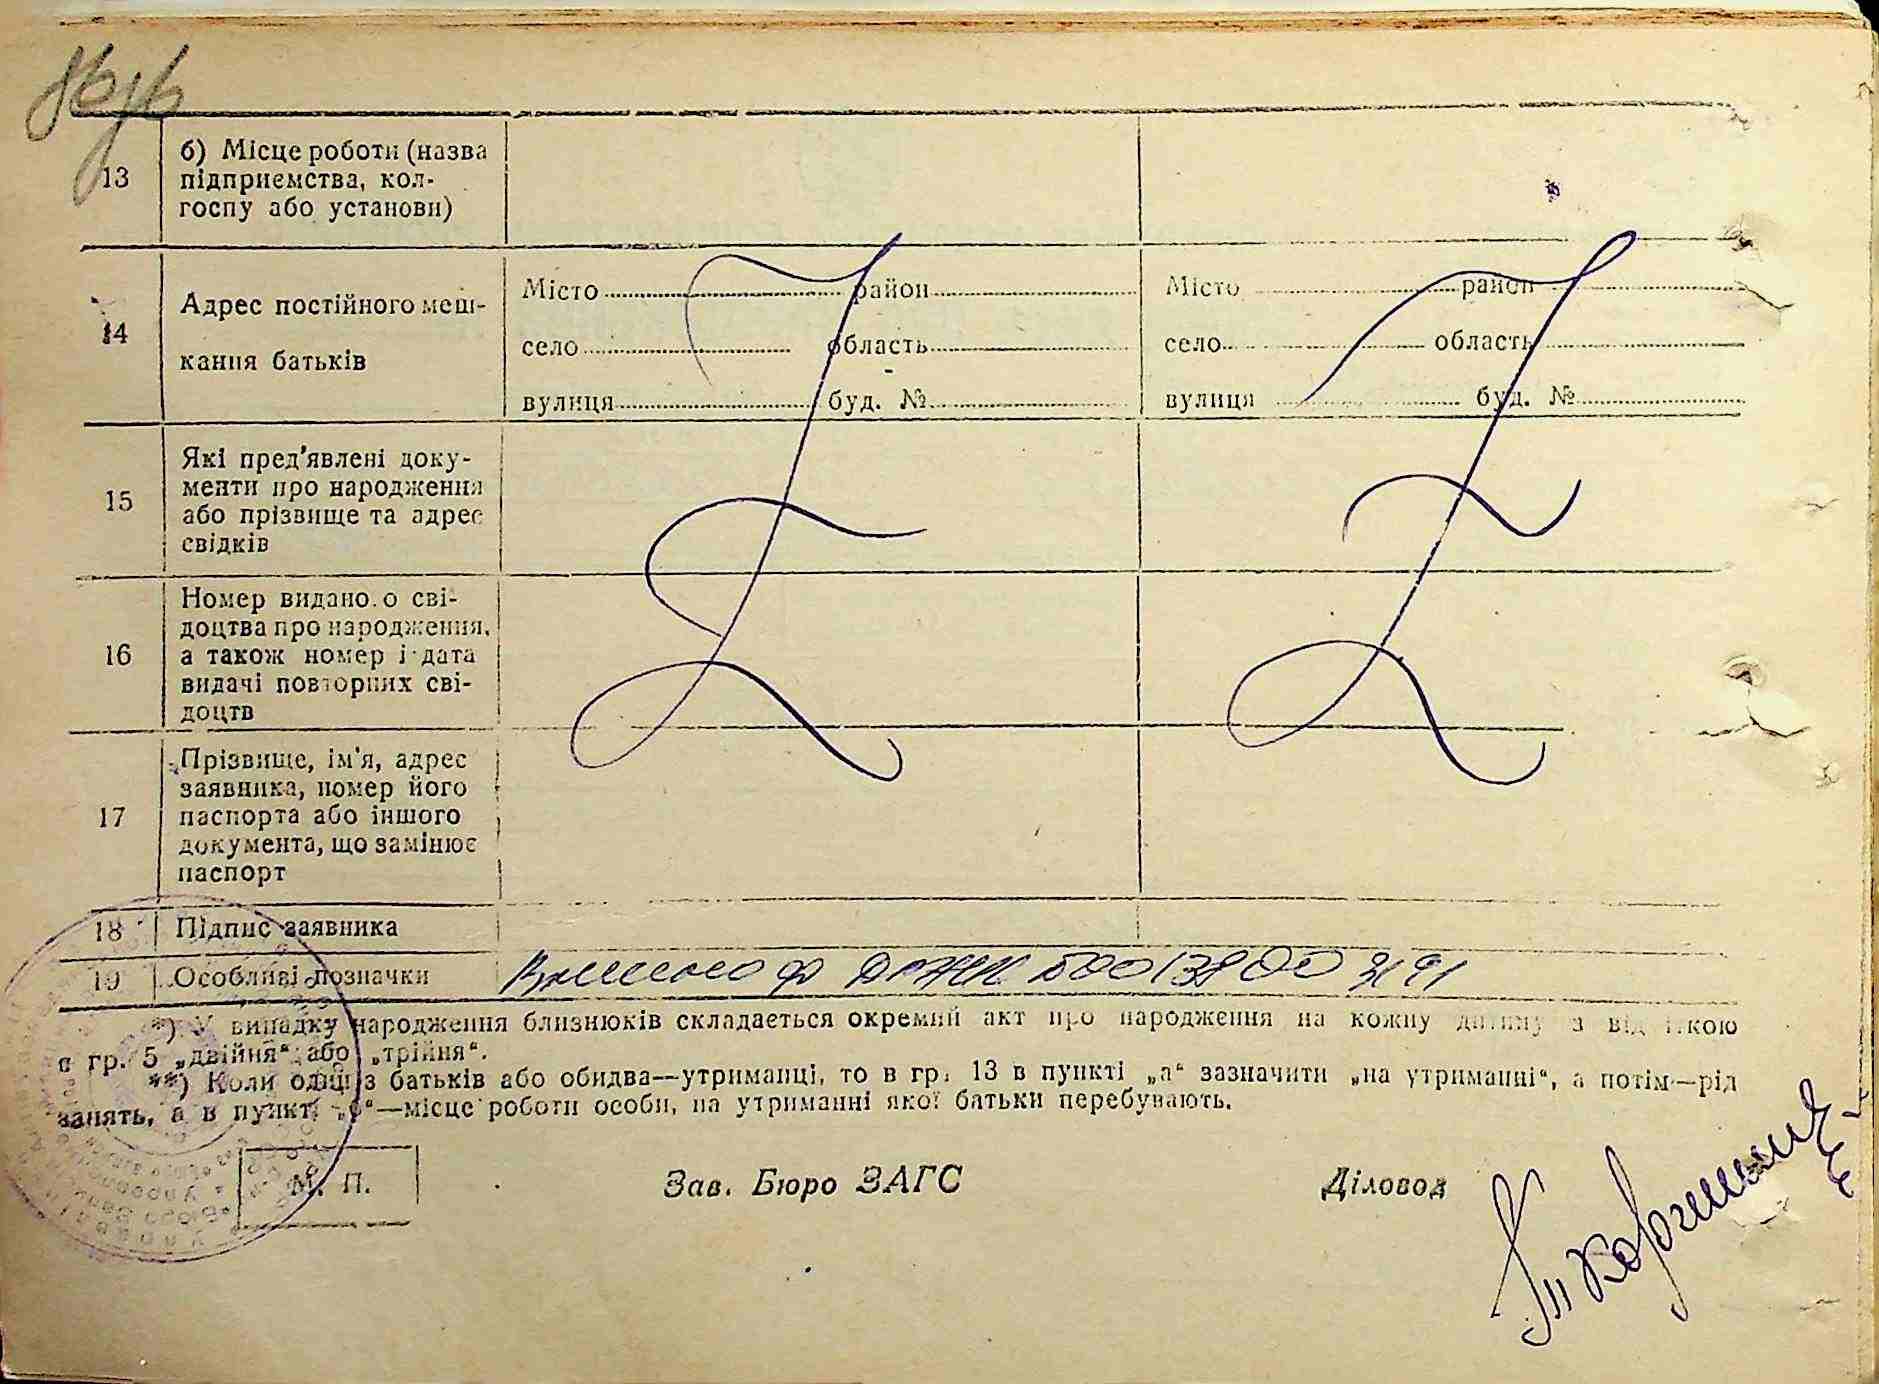 13 б) Місце роботи (назва
підприємства, кол-
госпу або установи)
14 Адрес постійного меш-
кання батьків
Місто район
село область
вулиця буд. №
Місто район
село область
вулиця буд. №
15 Які пред'явлені доку-
менти про народження
або прізвище та адрес
свідків
16 Номер видано.о сві-
доцтва про народження,
а також номер і дата
видачі повторних сві-
доцтв
17 Прізвище, ім'я, адрес
заявника, номер його
паспорта або іншого
документа, що замінює
паспорт
18 Підпис заявника
19 Особливі позначки
*) У випадку народження близнюків складається окремий акт про народження на кожну дитину з відміткою
в гр. 5 „двійня“ або „трійня“.
**) Коли один з батьків або обидва—утриманці, то в гр. 13 в пункті „а“ зазначити „на утриманні“, а потім—рід
занять, а в пункті „б“—місце роботи особи, на утриманні якої батьки перебувають.
М. П.
Зав. Бюро ЗАГС
Діловод